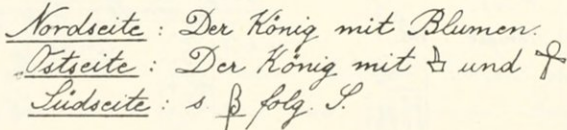 Nordseite : Der König mit Blumen.
Ostseite : Der König mit 𓊵 und 𓋹
Südseite : s. β folg. S.